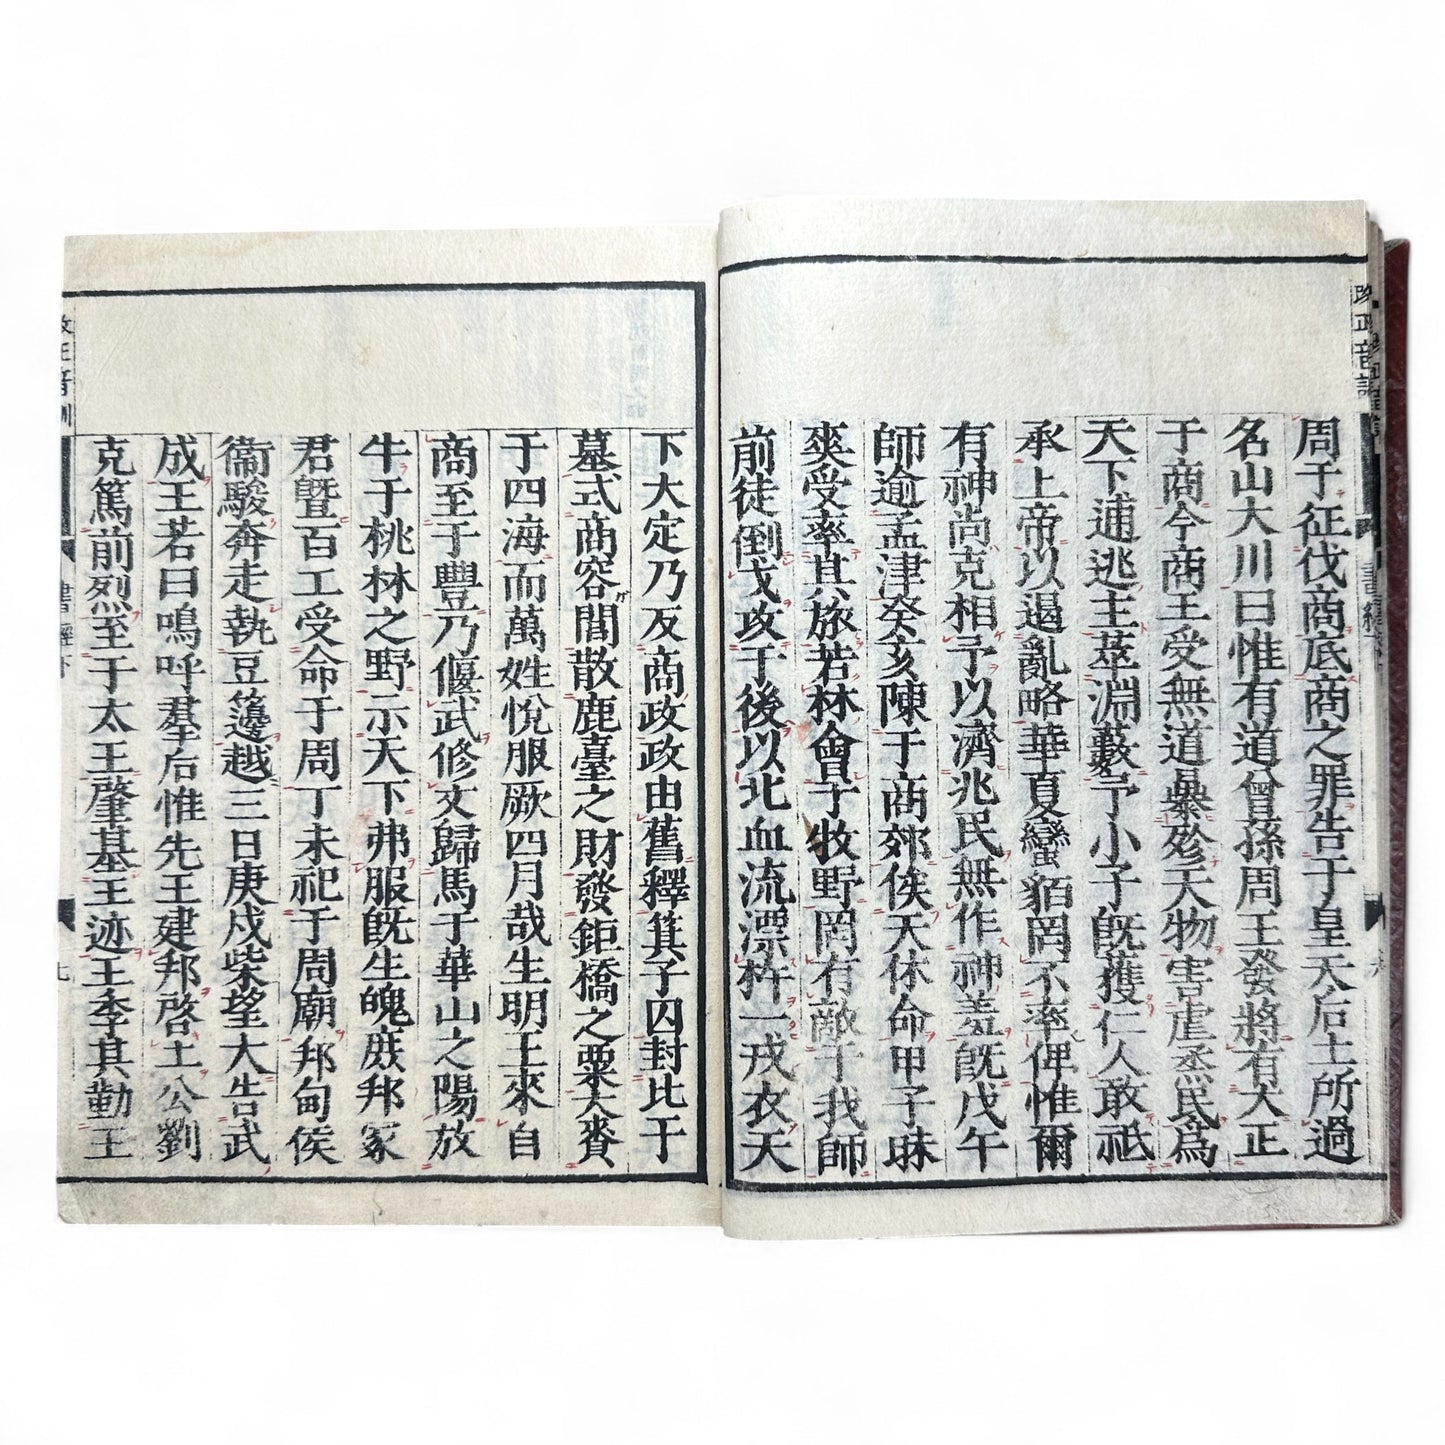 周于征伐商底商之罪告于皇天后土所過
名山大川曰惟有道曾孫周王發將有大正
于商今商王受無道暴殄天物害虐烝民爲
天下逋逃主萃淵藪予小子旣獲仁人敢祇
承上帝以遏亂略華夏蠻貊罔不率俾惟爾
有神尚克相予以濟兆民無作神羞旣戊午
師逾孟津癸亥陳于商郊俟天休命甲子昧
爽受率其旅若林會于牧野罔有敵于我師
前徒倒戈攻于後以北血流漂杵一戎衣天
下大定乃反商政政由舊釋箕子囚封比干
墓式商容閭散鹿臺之財發鉅橋之粟大賚
于四海而萬姓悅服厥四月哉生明王來自
商至于豐乃偃武修文歸馬于華山之陽放
牛于桃林之野示天下弗服旣生魄庶邦冢
君曁百工受命于周丁未祀于周廟邦甸侯
衞駿奔走執豆籩越三日庚戌柴望大告武
成王若曰嗚呼羣后惟先王建邦啓土公劉
克篤前烈至于太王肇基王迹王季其勤王
改正音訓
書經下
七